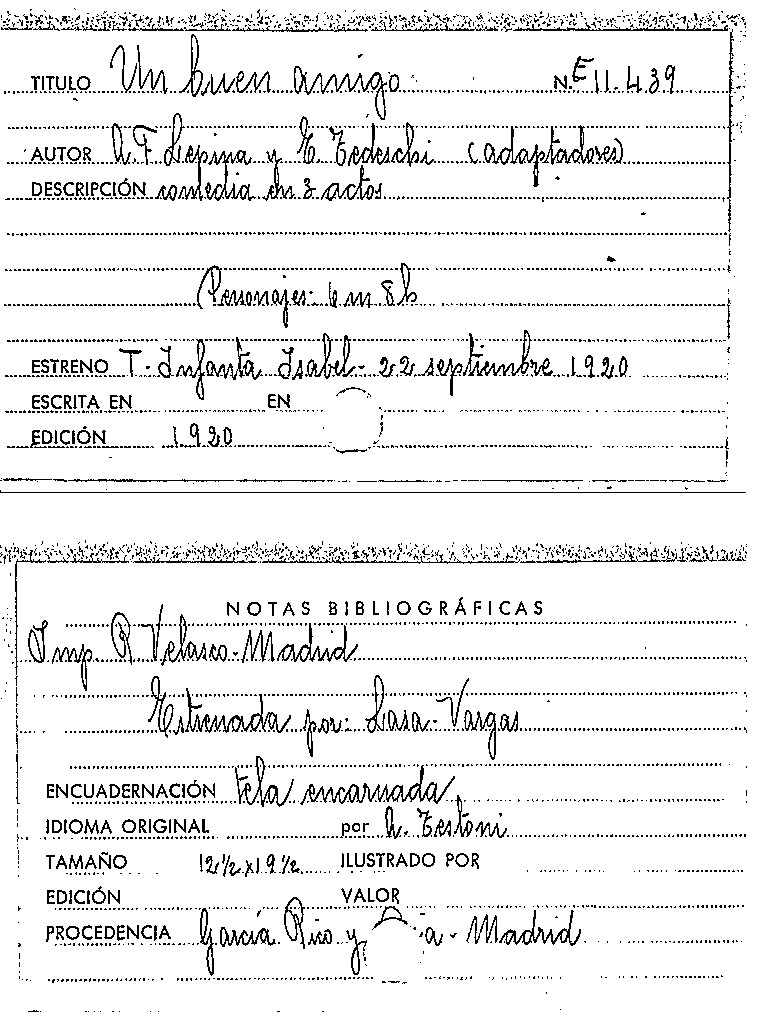 TITULO Un buen amigo N.E 11.439
AUTOR A. F. Lepina y E. Tedeschi (adaptadores)
DESCRIPCIÓN comedia en 3 actos
Personajes: 6 m 8 h
ESTRENO T. Infanta Isabel - 22 septiembre 1920
ESCRITA EN EN
EDICIÓN 1920
NOTAS BIBLIOGRÁFICAS
Imp. R. Velasco - Madrid
Estrenada por: Lasa - Vargas
ENCUADERNACIÓN tela encarnada
IDIOMA ORIGINAL por A. Testoni
TAMAÑO 12 1/2 x 19 1/2 ILUSTRADO POR
EDICIÓN VALOR
PROCEDENCIA García Rico y a - Madrid